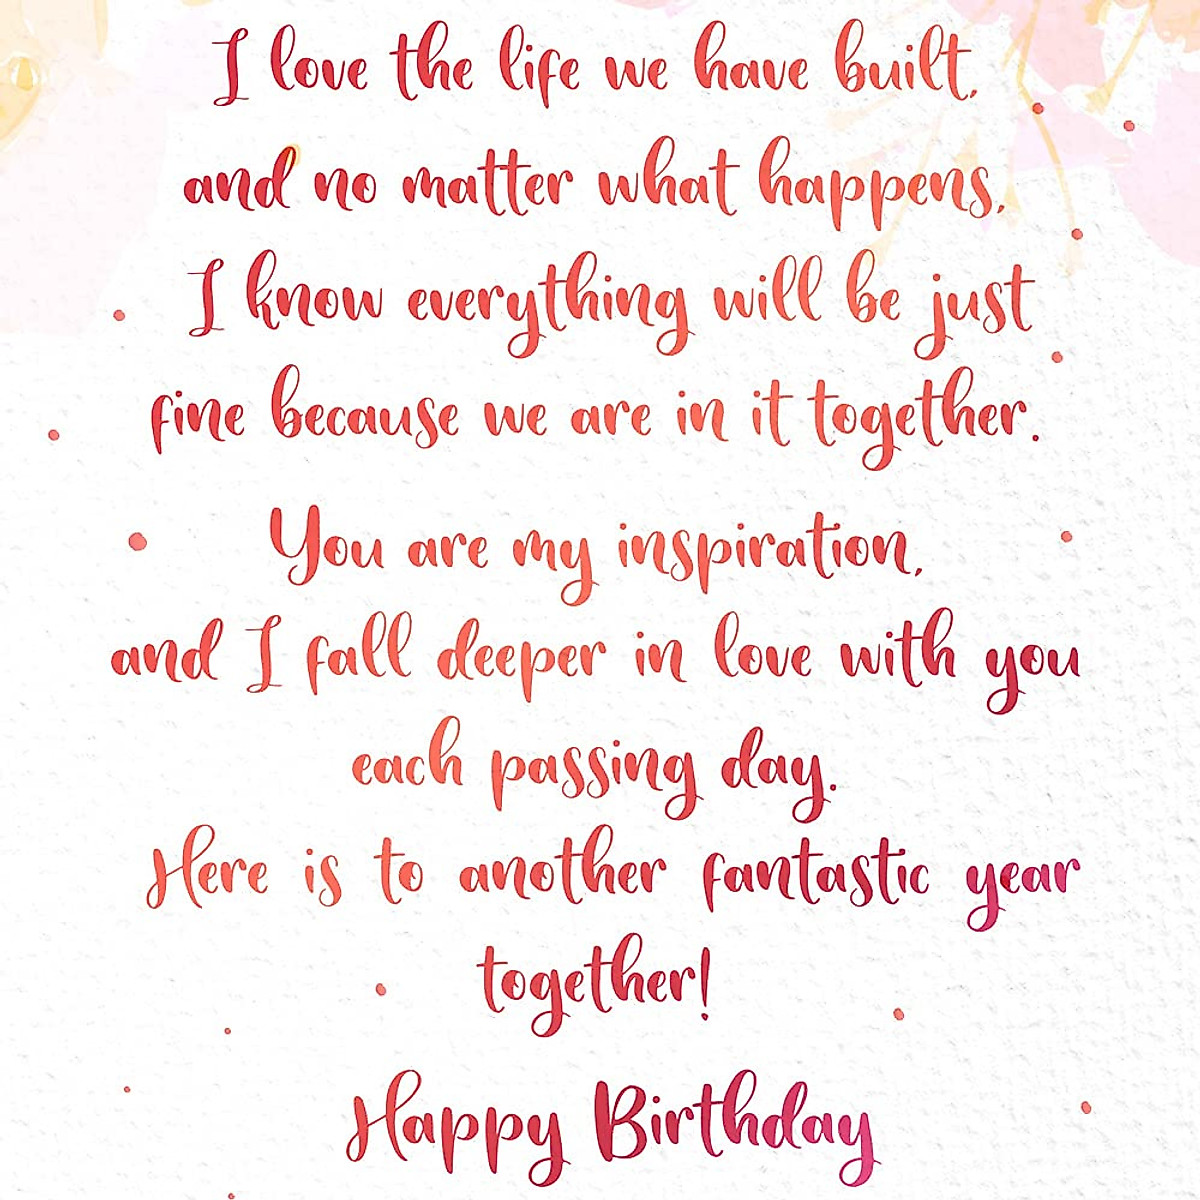 I love the life we have built,
and no matter what happens,
I know everything will be just
fine because we are in it together.
You are my inspiration,
and I fall deeper in love with you
each passing day.
Here is to another fantastic year
together!
Happy Birthday